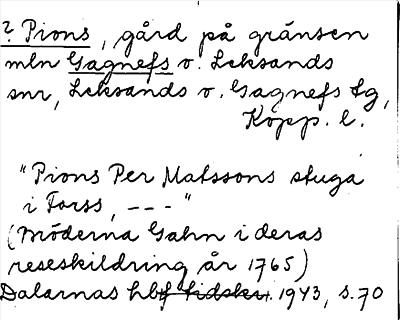 ? Pions, gård på gränsen
mln Gagnefs o. Leksands
snr, Leksands o. Gagnefs tg,
Kopp. l.
"Pions Per Matssons stuga
i Forss, – – – "
(Bröderna Gahn i deras
reseskildring år 1765)
Dalarnas hbf tidskr. 1943, s. 70